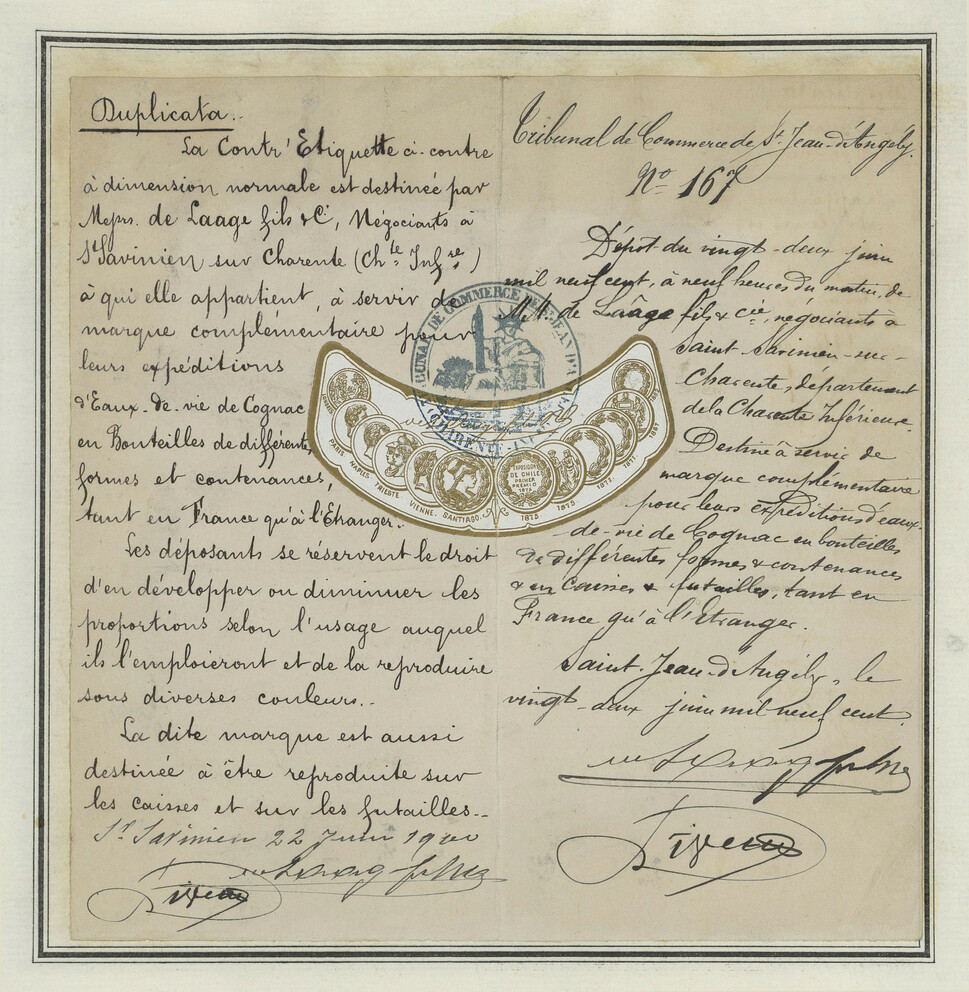 Duplicata.
La Contr'Etiquette ci-contre
à dimension normale est destinée par
Messrs. de Laage fils & Cie, Négociants à
St Savinien sur Charente (Chte Infre)
à qui elle appartient, à servir de
marque complémentaire pour
leurs expéditions
d'Eaux-de-vie de Cognac
en Bouteilles de différentes
formes et contenances,
tant en France qu'à l'Etranger.
Les déposants se réservent le droit
d'en développer ou diminuer les
proportions selon l'usage auquel
ils l'emploieront et de la reproduire
sous diverses couleurs.
La dite marque est aussi
destinée à être reproduite sur
les caisses et sur les futailles.
St Savinien 22 Juin 1900
Tribunal de Commerce de St Jean-d'Angély.
No 167
Dépot du vingt-deux juin
mil neuf cent, à neuf heures du matin, de
M.M. de Laâge fils & cie, négociants à
Saint-Savinien-sur-
Charente, département
de la Charente Inférieure.
Destiné à servir de
marque complémentaire
pour leurs expéditions d'eaux-
de-vie de Cognac en bouteilles
de différentes formes & contenances
& en caisses & futailles, tant en
France qu'à l'Etranger.
Saint-Jean-d'Angély, le
vingt-deux juin mil neuf cent.
TRIBUNAL DE COMMERCE DE ST JEAN D'A
CHARENTE-INF
PARIS TRIESTE VIENNE. SANTIAGO.
1875 1875 1872. 1871 1867
EXPOSICION
DE CHILE
PRIMER
PREMIO
1875